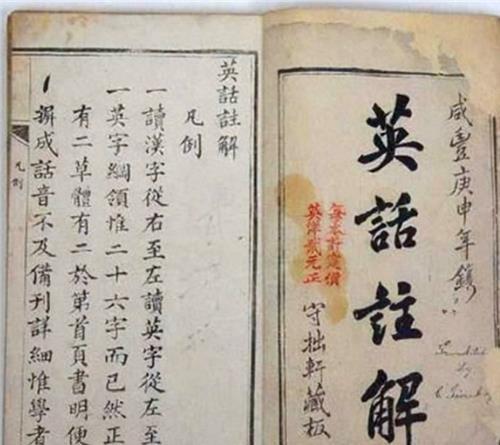 咸豐庚申年鐫
英話註解
每本計定價
英洋貳元正
守拙軒藏板
by
英話註解
凡例
一讀漢字從右至左讀英字從左至
一英字綱領惟二十六字而已然正
有二草體有二於第首頁書明便
一成話音不及備刊詳細惟學者
凡例